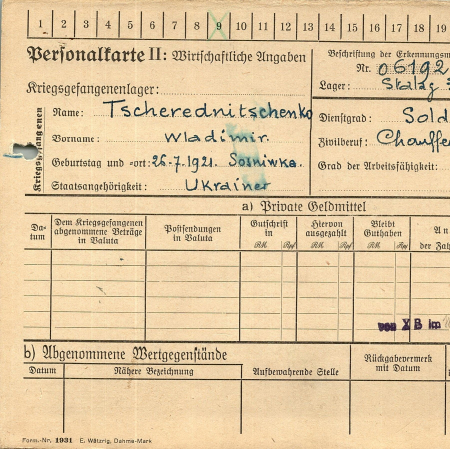 1 2 3 4 5 6 7 8 9 10 11 12 13 14 15 16 17 18 19
Personalkarte II: Wirtschaftliche Angaben
Beschriftung der Erkennungsm
Nr. 06192
Kriegsgefangenenlager:
Lager: Stalag
Kriegsgefangenen
Name: Tscherednitschenko
Vorname: Wladimir.
Geburtstag und -ort: 26.7.1921. Sosniwka.
Staatsangehörigkeit: Ukrainer
Dienstgrad: Sold
Zivilberuf: Chauffe
Grad der Arbeitsfähigkeit:
a) Private Geldmittel
Da-
tum
Dem Kriegsgefangenen
abgenommene Beträge
in Valuta
Postsendungen
in Valuta
Gutschrift
in
RM. Rpf
Hiervon
ausgezahlt
RM. Rpf
Bleibt
Guthaben
RM. Rpf
An
der Zah
von X B im
b) Abgenommene Wertgegenstände
Datum
Nähere Bezeichnung
Aufbewahrende Stelle
Rückgabevermerk
mit Datum
Form.-Nr. 1931 E. Wätzig, Dahme-Mark